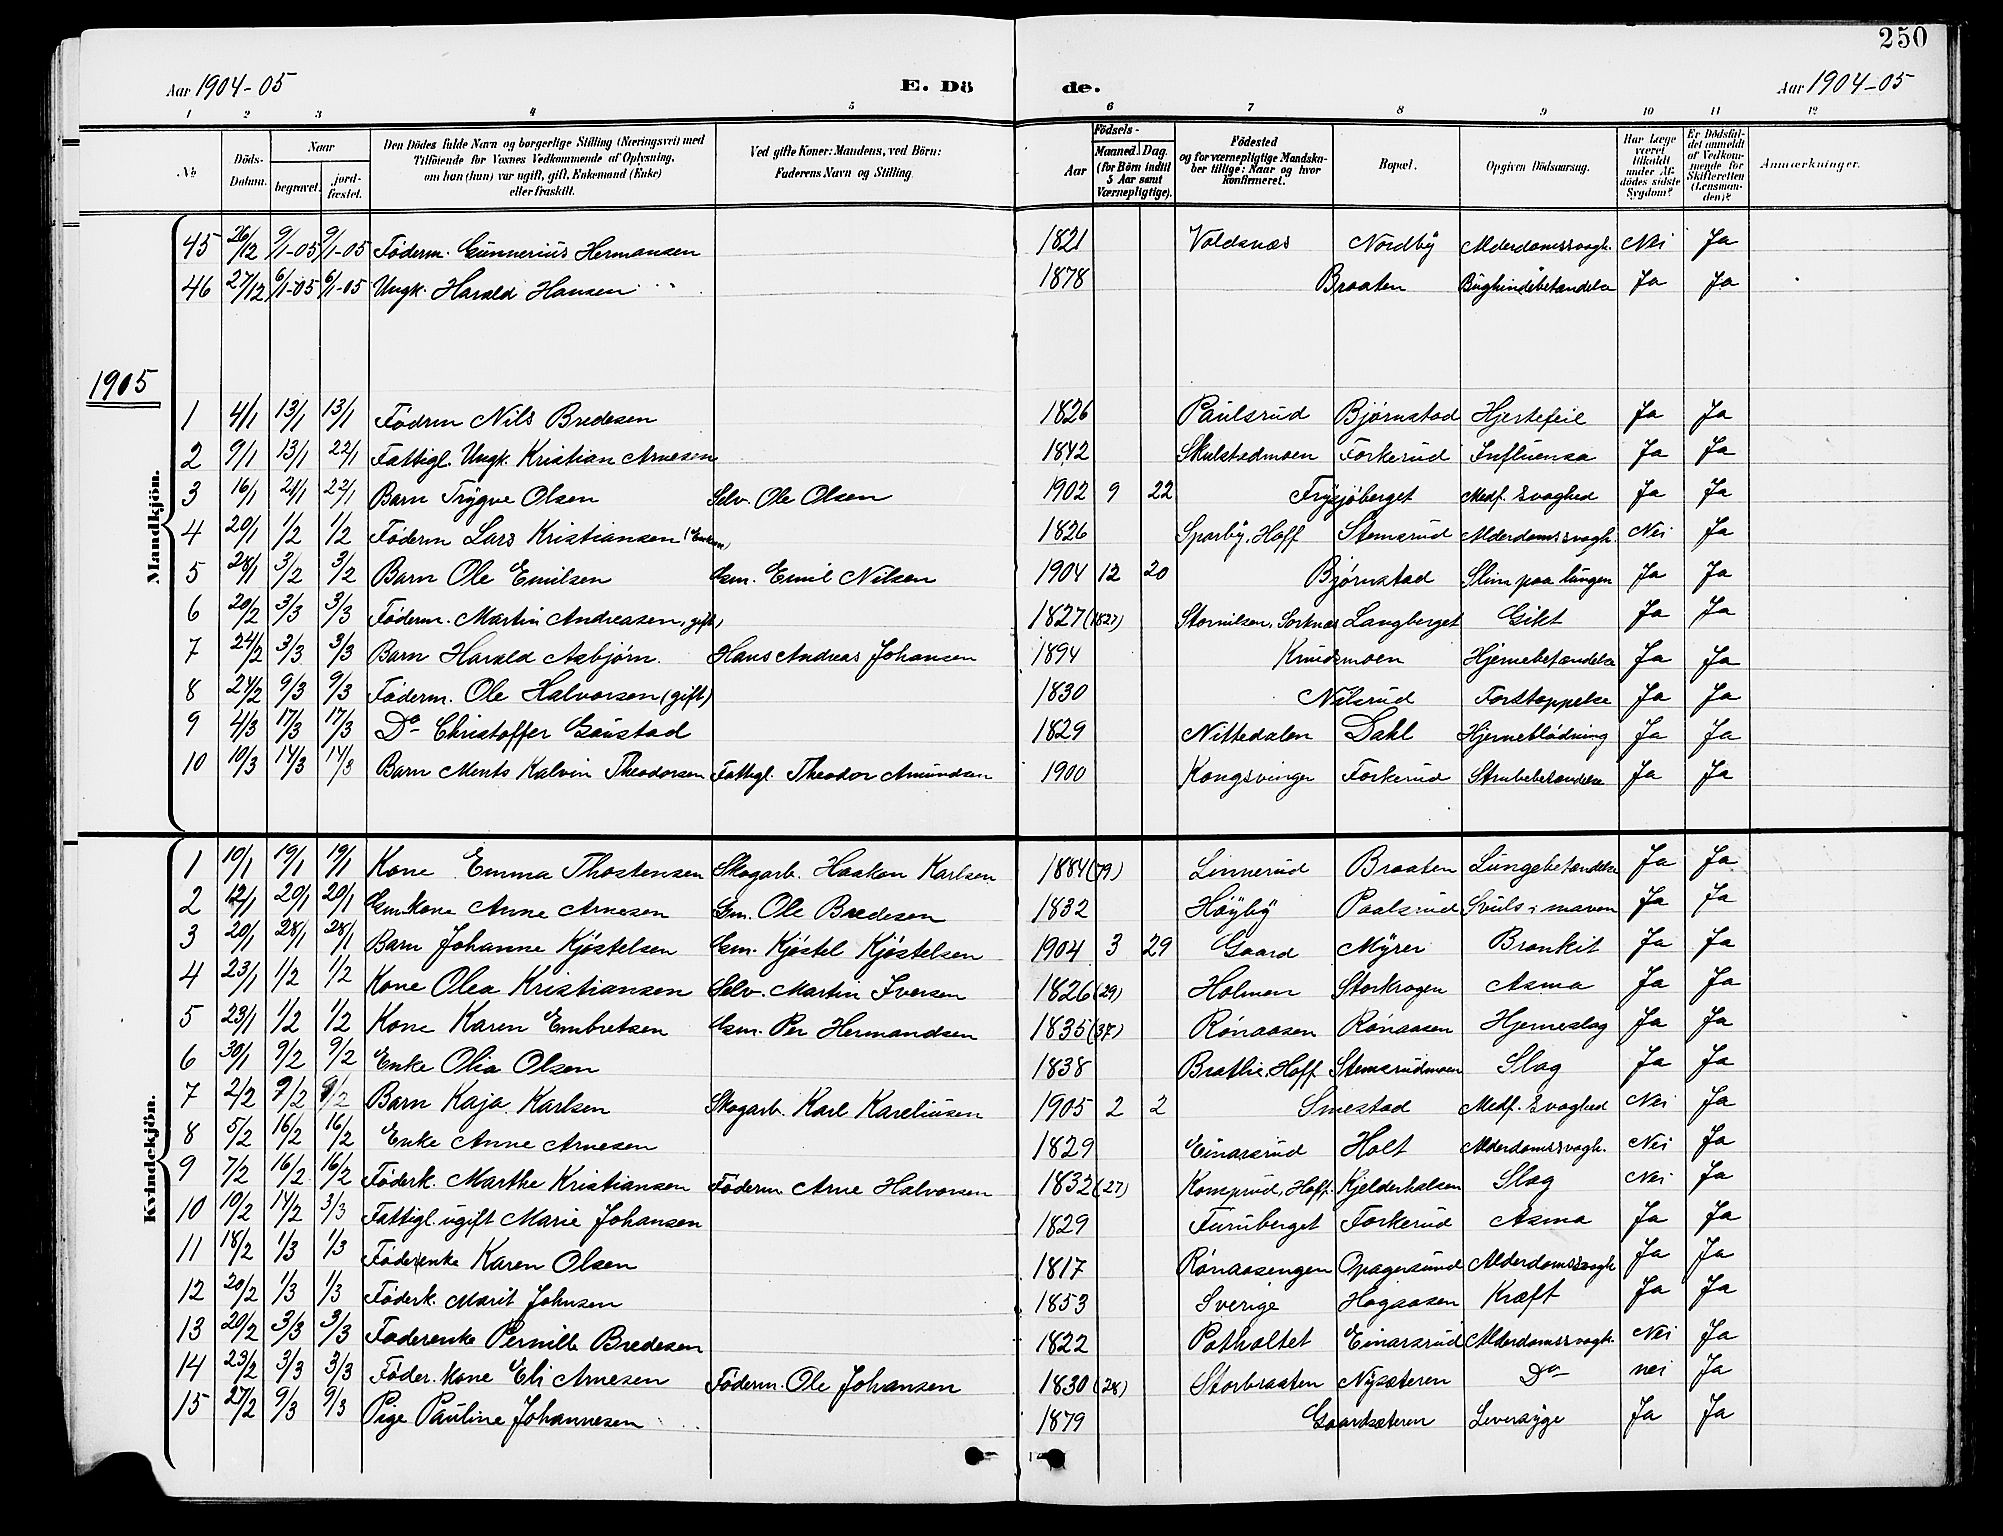 250
Aar 1904-05 E. Dö de. Aar 1904-05
1 2 3 4 5 6 7 8 9 10 11 12
No
Döds-Datum.
Naar
begravet.
jord-fæstet.
Den Dödes fulde Navn og borgerlige Stilling (Næringsvei) med
Tilföiende for Voxnes Vedkommende af Oplysning,
om han (hun) var ugift, gift, Enkemand (Enke)
eller fraskilt.
Ved gifte Koner: Mandens, ved Börn:
Faderens Navn og Stilling.
Födsels-
Aar
Maaned. Dag.
(for Börn indtil
5 Aar samt
Værnepligtige).
Födested
og for værnepligtige Mandska-
ber tillige: Naar og hvor
konfirmeret.
Bopæl.
Opgiven Dödsaarsag.
Har Læge
været
tilkaldt
under Af-
dödes sidste
Sygdom?
Er Dödsfal-
det anmeldt
af Vedkom-
mende for
Skifteretten
(Lensman-
den)?
Anmærkninger.
45 26/12 9/1-05 9/1-05 Føderm. Gunnerius Hermansen 1821 Voldsnæs Nordby Alderdomssvagh. Nei Ja
46 27/12 6/1-05 6/1-05 Ungk. Harald Hansen 1878 Braaten Bughindebetændelse Ja Ja
1905
Mandkjön.
1 4/1 13/1 13/1 Födrm Nils Bredesen 1826 Paulsrud Bjørnstad Hjertefeil Ja Ja
2 9/1 13/1 22/1 Fattigl. Ungk. Kristian Arnesen 1842 Skulstadmoen Forkerud Influensa Ja Ja
3 16/1 21/1 22/1 Barn Trygve Olsen Selv. Ole Olsen 1902 9 22 Frysjöberget Medf. Svaghed Ja Ja
4 20/1 1/2 1/2 Föderm Lars Kristiansen (Enkem) 1826 Sparby, Hoff Stemsrud Alderdomssvagh. Nei Ja
5 28/1 3/2 3/2 Barn Ole Emilsen Gm. Emil Nilsen 1904 12 20 Bjørnstad Slim paa lungen Ja Ja
6 20/2 3/3 3/3 Föderm. Martin Andreasen, gift) 1827 (1827) Stornilsen, Sorknæs Langberget Gikt Ja Ja
7 24/2 3/3 3/3 Barn Harald Asbjørn. Hans Andreas Johansen 1894 Knudsmoen Hjernebetændelse Ja Ja
8 24/2 9/3 9/3 Föderm. Ole Halvorsen (gift) 1830 Nilsrud Forstoppelse Ja Ja
9 4/3 17/3 17/3 Do Christoffer Gaustad 1829 Nittedalen Dahl Hjerneblödning Ja Ja
10 10/3 14/3 14/3 Barn Ments Kalvin Theodorsen Fattigl. Theodor Amundsen 1900 Kongsvinger Forkerud Strubebetændelse Ja Ja
Kvindekjön.
1 10/1 19/1 19/1 Kone Emma Thostensen Skogarb. Haakon Karlsen 1884 (79) Linnerud Braaten Lungebetændelse Ja Ja
2 12/1 20/1 20/1 Gm.kone Anne Arnesen Gm. Ole Bredesen 1832 Høyby Paalsrud Svuls i maven Ja Ja
3 20/1 28/1 28/1 Barn Johanne Kjöstelsen Gm. Kjöstel Kjöstelsen 1904 3 29 Gaard Myrer Bronkit Ja Ja
4 23/1 1/2 1/2 Kone Olea Kristiansen Selv. Martin Iversen 1826 (29) Holmen Storkrogen Asma Ja Ja
5 23/1 1/2 1/2 Kone Karen Embretsen Gm. Per Hermandsen 1835 (37) Rønaasen Rønaasen Hjerneslag Ja Ja
6 30/1 9/2 9/2 Enke Olia Olsen 1838 Brathe, Hoff Stemsrudmoen Slag Ja Ja
7 2/2 9/2 9/2 Barn Kaja Karlsen Skogarb. Karl Kareliusen 1905 2 2 Smestad Medf. Svaghed Nei Ja
8 5/2 16/2 16/2 Enke Anne Arnesen 1829 Einarsrud Holt Alderdomssvagh. Nei Ja
9 7/2 16/2 16/2 Föderk. Marthe Kristiansen Föderm Arne Halvorsen 1832 (27) Komprud, Hoff. Kjelderhalsen Slag Nei Ja
10 10/2 14/2 3/3 Fattigl. ugift Marie Johansen 1829 Furuberget Forkerud Asma Ja Ja
11 18/2 1/3 1/3 Föderenke Karen Olsen 1817 Rønaasengen Opagersund Alderdomssvagh Ja Ja
12 20/2 1/3 1/3 Föderk. Marit Johnsen 1853 Sverige Hagaasen Kræft Ja Ja
13 20/2 3/3 3/3 Føderenke Pernille Bredesen 1822 Potholtet Einarsrud Alderdomssvagh. Nei Ja
14 23/2 3/3 3/3 Föder. Kone Eli Arnesen Föderm. Ole Johansen 1830 (28) Storbraaten Nysæteren Do nei Ja
15 27/2 9/3 9/3 Pige Pauline Johannesen 1879 Gaardsæteren Leversyge Ja Ja